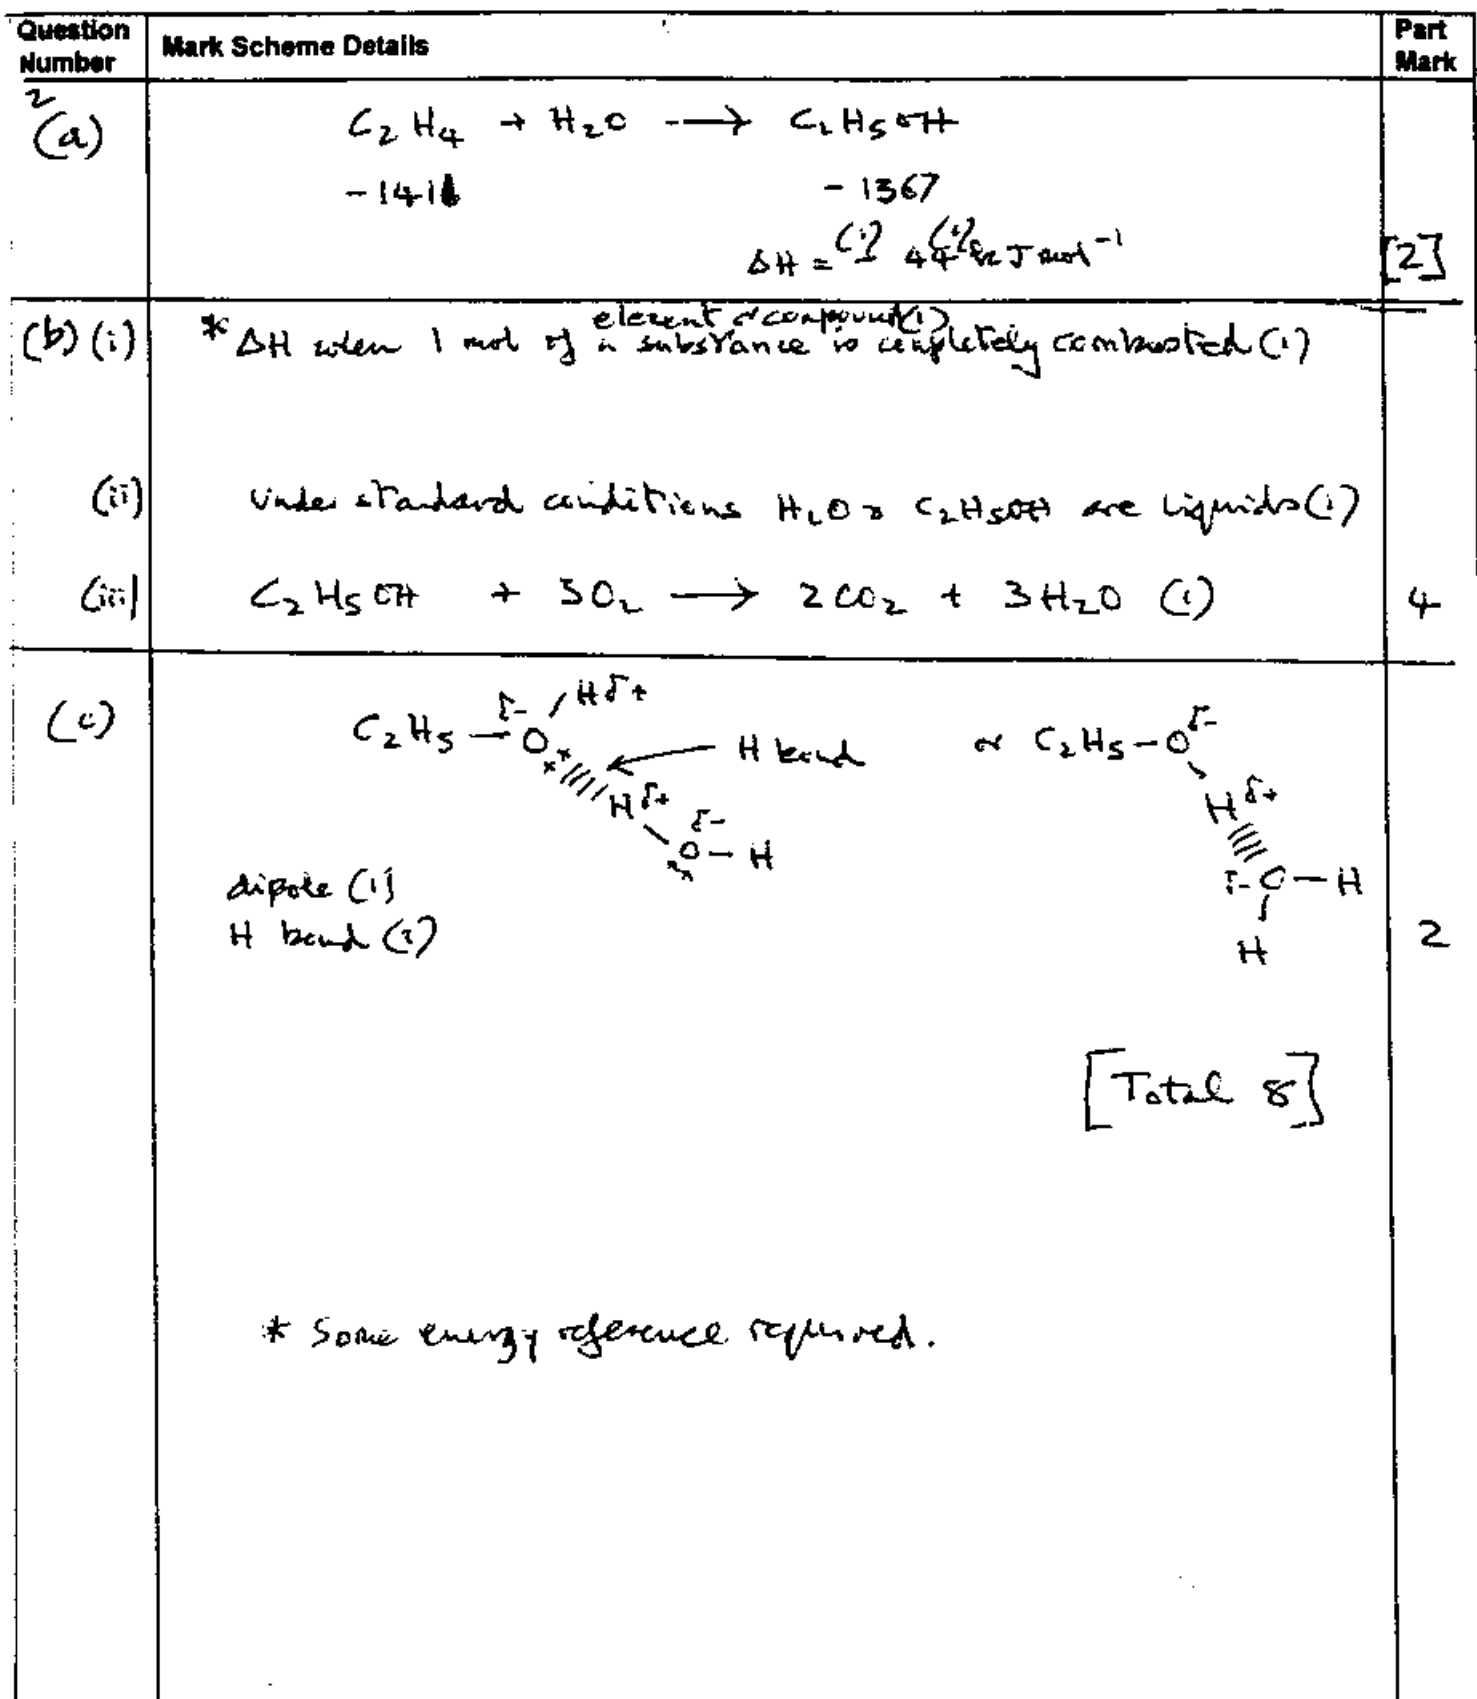 Question Number
Mark Scheme Details
Part Mark
2
(a)
C₂H₄ + H₂O → C₂H₅OH
-1411 -1367
ΔH = (1) - 44 (1) kJ mol⁻¹
[2]
(b) (i)
element or compound (1)
* ΔH when 1 mol of a substance is completely combusted (1)
(ii) Under standard conditions H₂O & C₂H₅OH are liquids (1)
(iii) C₂H₅OH + 3O₂ → 2CO₂ + 3H₂O (1)
4
(c)
C₂H₅ – O δ- H δ+
H bond
H δ+
O δ- – H
or C₂H₅ – O δ-
H δ+
δ- O – H
H
dipole (1)
H bond (1)
2
[Total 8]
* Some energy reference required.